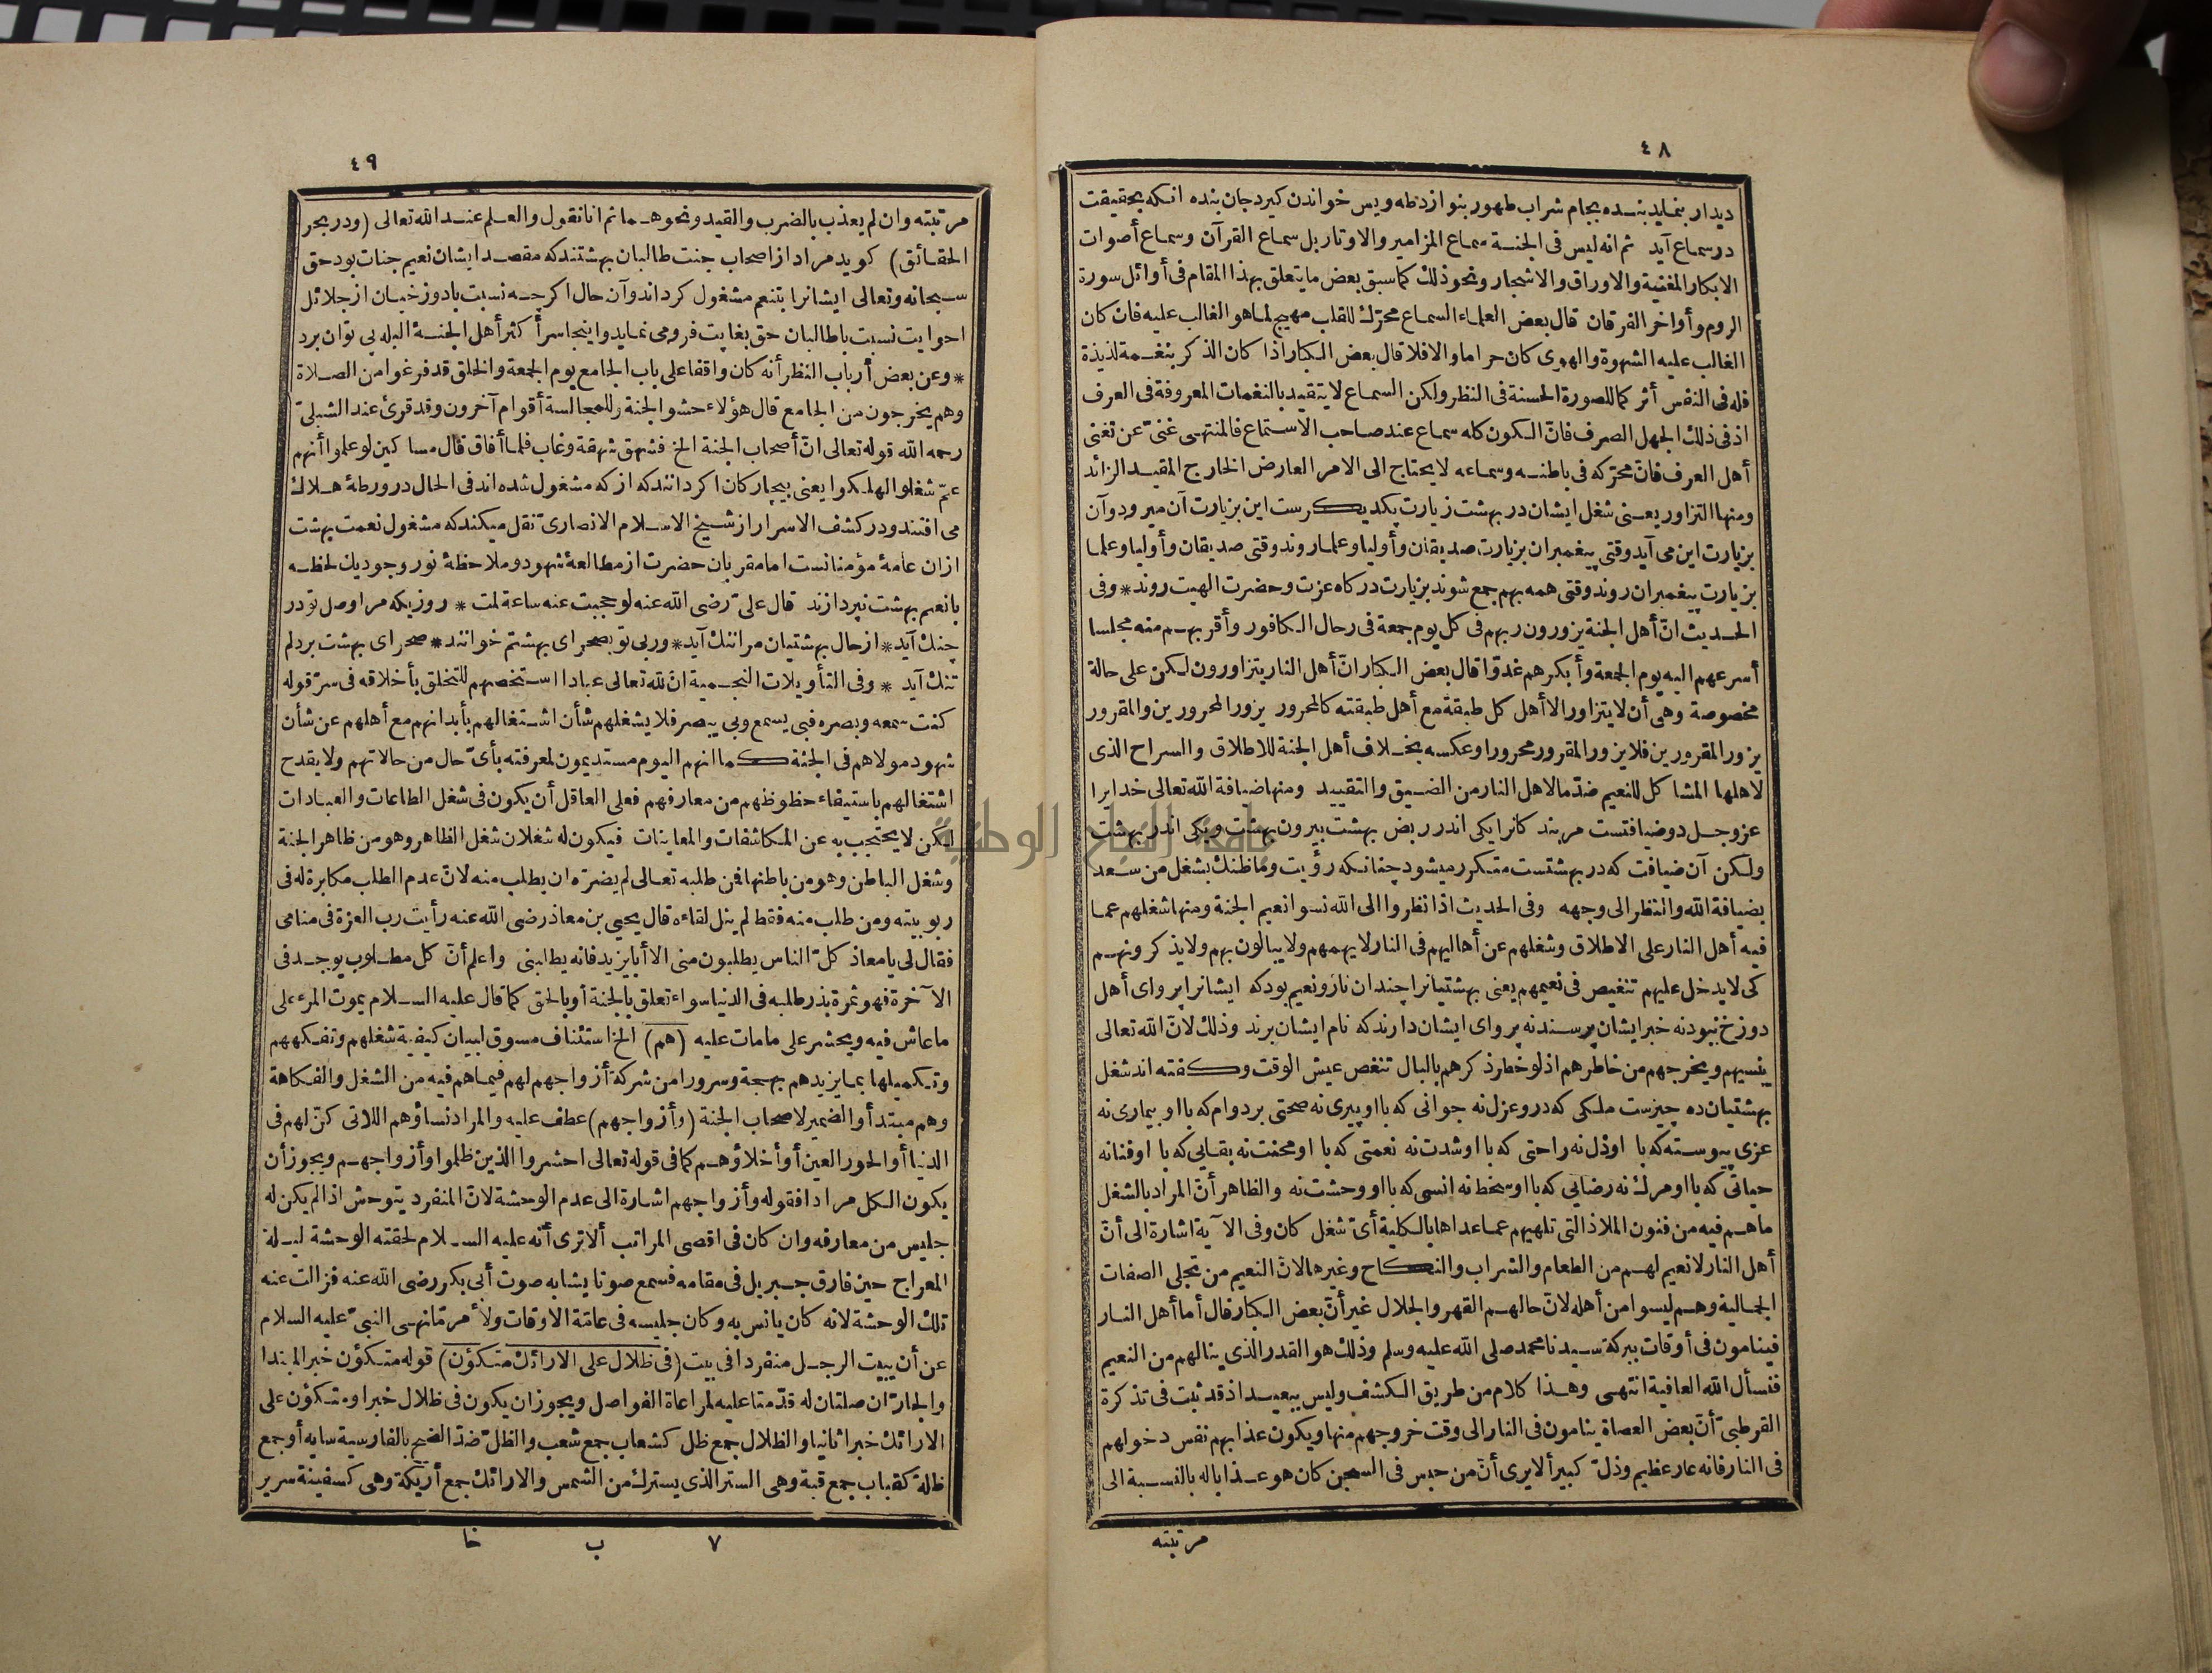 ٤٨
ديدار بنمايد بنده بجام شراب طهور بنوازد طه ويس خواندن كيرد جان بنده انكه بحقيقت
در سماع آيد ثم انه ليس فى الجنة سماع المزامير والاوتار بل سماع القرآن وسماع أصوات
الابكار المغنية والاوراق والاشجار ونحو ذلك كما سبق بعض ما يتعلق بهذا المقام فى أوائل سورة
الروم وأواخر الفرقان قال بعض العلماء السماع محرّك للقلب مهيج لما هو الغالب عليه فان كان
الغالب عليه الشهوة والهوى كان حراما والا فلا قال بعض الكبار اذا كان الذكر بنغمة لذيذة
فله فى النفس أثر كما للصورة الحسنة فى النظر ولكن السماع لا يتقيد بالنغمات المعروفة فى العرف
اذ فى ذلك الجهل الصرف فانّ الكون كله سماع عند صاحب الاستماع فالمنتهى غنىّ عن تغنى
أهل العرف فانّ محرّكه فى باطنه وسماعه لا يحتاج الى الامر العارض الخارج المقيد الزائد
ومنها التزاور يعنى شغل ايشان در بهشت زيارت يكديكرست اين بزيارت آن ميرود وآن
بزيارت اين مى آيد وقتى پيغمبران بزيارت صديقان وأوليا وعلما روند وقتى صديقان وأوليا وعلما
بزيارت پيغمبران روند وقتى همه بهم جمع شوند بزيارت دركاه عزت وحضرت الهيت روند * وفى
الحديث انّ أهل الجنة يزورون ربهم فى كل يوم جمعة فى رحال الكافور وأقربهم منه مجلسا
أسرعهم اليه يوم الجمعة وأبكرهم غدوّا قال بعض الكبار انّ أهل النار يتزاورون لكن على حالة
مخصوصة وهى أن لا يتزاور الا أهل كل طبقة مع أهل طبقته كالمحرور يزور المحرورين والمقرور
يزور المقرورين فلا يزور المقرور محرورا وعكسه بخلاف أهل الجنة للاطلاق والسراح الذى
لاهلها المشاكل للنعيم ضدّ ما لاهل النار من الضيق والتقييد ومنها ضيافة الله تعالى خدايرا
عز وجل دو ضيافتست مر بندكانرا يكى اندر ربض بهشت بيرون بهشت ويكى اندر بهشت
ولكن آن ضيافت كه در بهشتست متكرر ميشود چنانكه رؤيت وما ظنك بشغل من سعد
بضيافة الله والنظر الى وجهه وفى الحديث اذا نظروا الى الله نسوا نعيم الجنة ومنها شغلهم عما
فيه أهل النار على الاطلاق وشغلهم عن أهاليهم فى النار لا يهمهم ولا يبالون بهم ولا يذكرونهم
كى لا يدخل عليهم تنغيص فى نعيمهم يعنى بهشتيانرا چندان ناز ونعيم بود كه ايشانرا پرواى أهل
دوزخ نبود نه خبر ايشان پرسند نه پرواى ايشان دارند كه نام ايشان برند وذلك لانّ الله تعالى
ينسيهم ويخرجهم من خاطرهم اذ لو خطر ذكرهم بالبال تنغص عيش الوقت وكفته اند شغل
بهشتيان ده چيزست ملكى كه درو عزل نه جوانى كه با او پيرى نه صحتى بر دوام كه با او بيمارى نه
عزى پيوسته كه با او ذل نه راحتى كه با او شدت نه نعمتى كه با او محنت نه بقايى كه با او فنا نه
حياتى كه با او مرك نه رضايى كه با او سخط نه انسى كه با او وحشت نه والظاهر أنّ المراد بالشغل
ما هم فيه من فنون الملاذ التى تلهيهم عما عداها بالكلية أىّ شغل كان وفى الآية اشارة الى أنّ
أهل النار لا نعيم لهم من الطعام والشراب والنكاح وغيرها لانّ النعيم من تجلى الصفات
الجمالية وهم ليسوا من أهله لانّ حالهم القهر والجلال غير أنّ بعض الكبار قال أما أهل النار
فينامون فى أوقات ببركة سيدنا محمد صلى الله عليه وسلم وذلك هو القدر الذى ينالهم من النعيم
فنسأل الله العافية انتهى وهذا كلام من طريق الكشف وليس ببعيد اذ قد ثبت فى تذكرة
القرطبىّ أنّ بعض العصاة ينامون فى النار الى وقت خروجهم منها ويكون عذابهم نفس دخولهم
فى النار فانه عار عظيم وذلّ كبير ألا يرى أنّ من حبس فى السجن كان هو عذابا له بالنسبة الى
مرتبته
٤٩
مرتبته وان لم يعذب بالضرب والقيد ونحوهما ثم انا نقول والعلم عند الله تعالى (ودر بحر
الحقائق) كويد مراد از اصحاب جنت طالبان بهشتند كه مقصد ايشان نعيم جنات بود حق
سبحانه وتعالى ايشانرا بتنعم مشغول كرداند وآن حال اكرچه نسبت با دوزخيان از جلائل
احوايت نسبت با طالبان حق بغايت فرو مى نمايد واينجا سر أكثر أهل الجنة البله پى توان برد
* وعن بعض أرباب النظر أنه كان واقفا على باب الجامع يوم الجمعة والخلق قد فرغوا من الصلاة
وهم يخرجون من الجامع قال هؤلاء حشو الجنة وللمجالسة أقوام آخرون وقد قرئ عند الشبلىّ
رحمه الله قوله تعالى انّ أصحاب الجنة الخ فشهق شهقة وغاب فلما أفاق قال مساكين لو علموا أنهم
عمّ شغلوا لهلكوا يعنى بيچاركان اكر دانند كه از كه مشغول شده اند فى الحال در ورطهٔ هلاك
مى افتند ودر كشف الاسرار از شيخ الاسلام الانصارىّ نقل ميكند كه مشغول نعمت بهشت
ازان عامهٔ مؤمنانست اما مقربان حضرت از مطالعهٔ شهود وملاحظهٔ نور وجود يك لحظه
با نعيم بهشت نپردازند قال علىّ رضى الله عنه لو حجبت عنه ساعة لمت * روزيكه مرا وصل تو در
چنك آيد * از حال بهشتيان مرا ننك آيد * وربى تو بصحراى بهشتم خوانند * صحراى بهشت بر دلم
تنك آيد * وفى التأويلات النجمية انّ لله تعالى عبادا استخصهم للتخلق بأخلاقه فى سرّ قوله
كنت سمعه وبصره فبى يسمع وبى يبصر فلا يشغلهم شأن اشتغالهم بأبدانهم مع أهلهم عن شأن
شهود مولاهم فى الجنة كما انهم اليوم مستديمون لمعرفته بأىّ حال من حالاتهم ولا يقدح
اشتغالهم باستيفاء حظوظهم من معارفهم فعلى العاقل أن يكون فى شغل الطاعات والعبادات
لكن لا يحتجب به عن المكاشفات والمعاينات فيكون له شغلان شغل الظاهر وهو من ظاهر الجنة
وشغل الباطن وهو من باطنها فمن طلبه تعالى لم يضرّه ان يطلب منه لانّ عدم الطلب مكابرة له فى
ربوبيته ومن طلب منه فقط لم ينل لقاءه قال يحيى بن معاذ رضى الله عنه رأيت رب العزة فى منامى
فقال لى يا معاذ كلّ الناس يطلبون منى الا أبا يزيد فانه يطلبنى واعلم أنّ كل مطلوب يوجد فى
الآخرة فهو ثمرة بذر طلبه فى الدنيا سواء تعلق بالجنة أو بالحق كما قال عليه السلام يموت المرء على
ما عاش فيه ويحشر على ما مات عليه (هم) الخ استئناف مسوق لبيان كيفية شغلهم وتفكههم
وتكميلها بما يزيدهم بهجة وسرورا من شركة أزواجهم لهم فيما هم فيه من الشغل والفكاهة
وهم مبتدأ والضمير لاصحاب الجنة (وأزواجهم) عطف عليه والمراد نساؤهم اللاتى كنّ لهم فى
الدنيا أو الحور العين أو أخلاؤهم كما فى قوله تعالى احشروا الذين ظلموا وأزواجهم ويجوز أن
يكون الكل مرادا فقوله وأزواجهم اشارة الى عدم الوحشة لانّ المنفرد يتوحش اذا لم يكن له
جليس من معارفه وان كان فى اقصى المراتب ألا ترى أنّه عليه السلام لحقته الوحشة ليلة
المعراج حين فارق جبريل فى مقامه فسمع صوتا يشابه صوت أبى بكر رضى الله عنه فزالت عنه
تلك الوحشة لانه كان يانس به وكان جليسه فى عامّة الاوقات ولأمر مّا نهى النبىّ عليه السلام
عن أن يبيت الرجل منفردا فى بيت (فى ظلال على الارائك متكؤن) قوله متكؤن خبر المبتدا
والجارّان صلتان له قدّمتا عليه لمراعاة الفواصل ويجوز ان يكون فى ظلال خبرا ومتكؤن على
الارائك خبرا ثانيا والظلال جمع ظل كشعاب جمع شعب والظلّ ضدّ الضح بالفارسية سايه أو جمع
ظلة كقباب جمع قبة وهى الستر الذى يسترك من الشمس والارائك جمع أريكة وهى كسفينة سرير
٧ ب خا
جامعة النجاح الوطنية